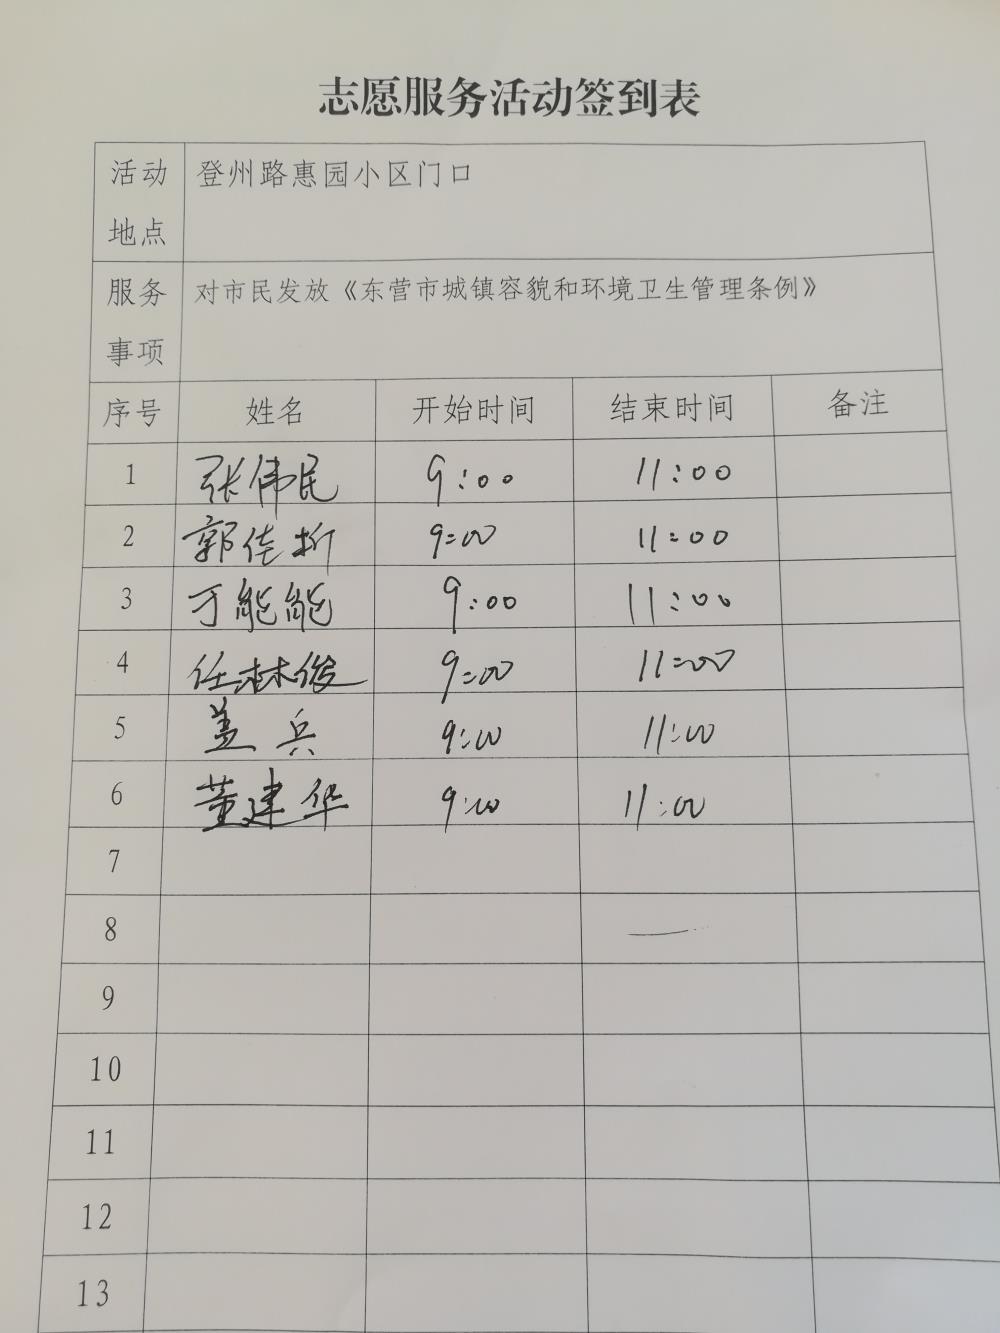 志愿服务活动签到表
活动地点 登州路惠园小区门口
服务事项 对市民发放《东营市城镇容貌和环境卫生管理条例》
序号 姓名 开始时间 结束时间 备注
1 张伟民 9:00 11:00
2 郭佳 9:00 11:00
3 能能 9:00 11:00
4 任林俊 9:00 11:00
5 盖兵 9:00 11:00
6 董建华 9:00 11:00
7
8
9
10
11
12
13